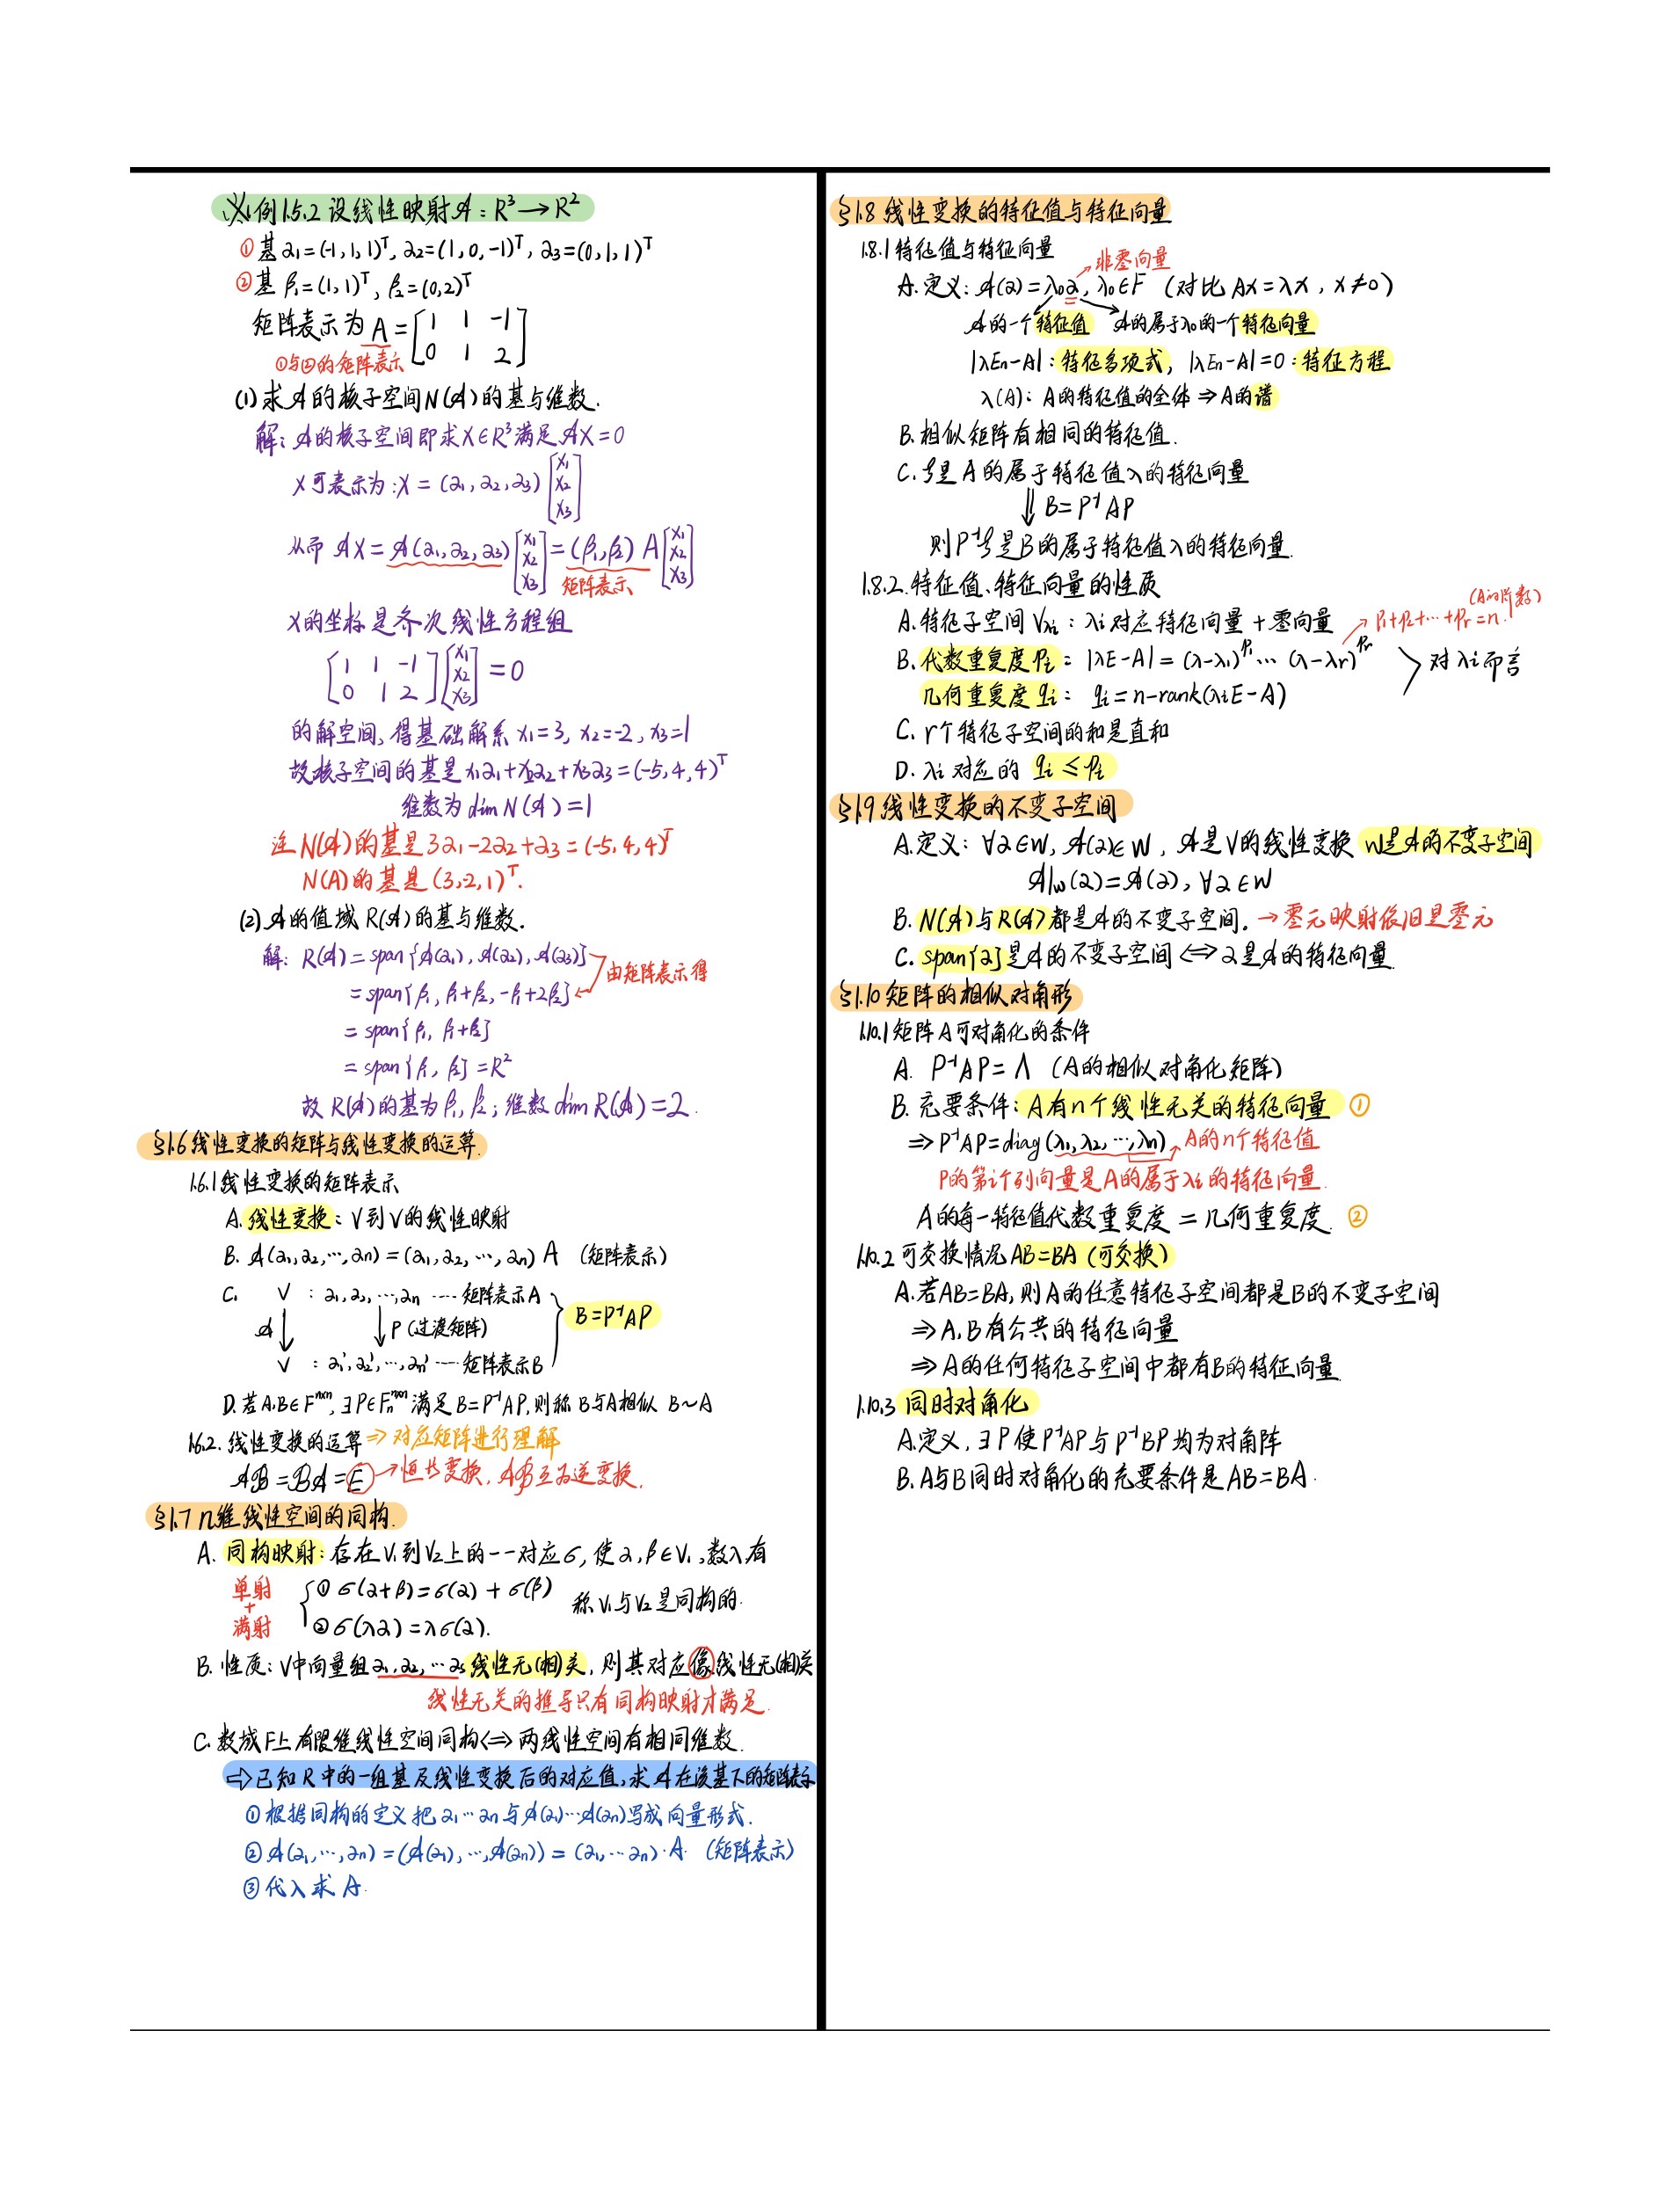 ※例1.5.2 设线性映射𝒜:R³→R²
①基α₁=(-1,1,1)ᵀ,α₂=(1,0,-1)ᵀ,α₃=(0,1,1)ᵀ
②基β₁=(1,1)ᵀ,β₂=(0,2)ᵀ
矩阵表示为A=[1 1 -1; 0 1 2]
①与②的矩阵表示
(1)求𝒜的核子空间N(𝒜)的基与维数.
解:𝒜的核子空间即求X∈R³满足𝒜X=0
X可表示为:X=(α₁,α₂,α₃)[x₁; x₂; x₃]
从而 𝒜X=𝒜(α₁,α₂,α₃)[x₁; x₂; x₃]=(β₁,β₂)A[x₁; x₂; x₃]
矩阵表示
X的坐标是齐次线性方程组
[1 1 -1; 0 1 2][x₁; x₂; x₃]=0
的解空间,得基础解系x₁=3,x₂=-2,x₃=1
故核子空间的基是x₁α₁+x₂α₂+x₃α₃=(-5,4,4)ᵀ
维数为dim N(𝒜)=1
注 N(𝒜)的基是3α₁-2α₂+α₃=(-5,4,4)ᵀ
N(A)的基是(3,-2,1)ᵀ.
(2)𝒜的值域R(𝒜)的基与维数.
解: R(𝒜)=span{𝒜(α₁),𝒜(α₂),𝒜(α₃)}
由矩阵表示得
=span{β₁,β₁+β₂,-β₁+2β₂}
=span{β₁,β₁+β₂}
=span{β₁,β₂}=R²
故R(𝒜)的基为β₁,β₂;维数dim R(𝒜)=2.
§1.6线性变换的矩阵与线性变换的运算
1.6.1线性变换的矩阵表示
A.线性变换:V到V的线性映射
B.𝒜(α₁,α₂,…,αn)=(α₁,α₂,…,αn)A (矩阵表示)
C. V :α₁,α₂,…,αn ---- 矩阵表示A
𝒜↓ ↓P(过渡矩阵) B=P⁻¹AP
V :α₁',α₂',…,αn' ---- 矩阵表示B
D.若A,B∈Fⁿˣⁿ,∃P∈Fₙⁿˣⁿ满足B=P⁻¹AP,则称B与A相似 B~A
1.6.2.线性变换的运算⇒对应矩阵进行理解
𝒜ℬ=ℬ𝒜=E→恒等变换,𝒜ℬ互为逆变换.
§1.7 n维线性空间的同构.
A.同构映射:存在V₁到V₂上的一一对应σ,使α,β∈V₁,数λ有
单射+满射
①σ(α+β)=σ(α)+σ(β)
称V₁与V₂是同构的.
②σ(λα)=λσ(α).
B.性质:V中向量组α₁,α₂,…αs线性无(相)关,则其对应像线性无(相)关
线性无关的推导只有同构映射才满足.
C.数域F上有限维线性空间同构⇔两线性空间有相同维数.
⇨已知R中的一组基及线性变换后的对应值,求𝒜在该基下的矩阵表示
①根据同构的定义把α₁…αn与𝒜(α₁)…𝒜(αn)写成向量形式.
②𝒜(α₁,…,αn)=(𝒜(α₁),…,𝒜(αn))=(α₁,…αn)·A (矩阵表示)
③代入求A.
§1.8 线性变换的特征值与特征向量
1.8.1特征值与特征向量
非零向量
A.定义:𝒜(α)=λ₀α,λ₀∈F (对比AX=λX,X≠0)
𝒜的一个特征值 𝒜的属于λ₀的一个特征向量
|λEn-A|:特征多项式, |λEn-A|=0:特征方程
λ(A):A的特征值的全体⇒A的谱
B.相似矩阵有相同的特征值.
C.ξ是A的属于特征值λ的特征向量
⇓B=P⁻¹AP
则P⁻¹ξ是B的属于特征值λ的特征向量.
1.8.2.特征值、特征向量的性质
(A的阶数)
A.特征子空间Vλi:λi对应特征向量+零向量 p₁+p₂+…+pr=n.
B.代数重复度pi:|λE-A|=(λ-λ₁)^p₁…(λ-λr)^pr
对λi而言
几何重复度qi: qi=n-rank(λiE-A)
C.r个特征子空间的和是直和
D.λi对应的 qi≤pi
§1.9线性变换的不变子空间
A.定义:∀α∈W,𝒜(α)∈W,𝒜是V的线性变换 W是𝒜的不变子空间
𝒜|w(α)=𝒜(α),∀α∈W
B.N(𝒜)与R(𝒜)都是𝒜的不变子空间.→零元映射依旧是零元
C.span{α}是𝒜的不变子空间⇔α是𝒜的特征向量.
§1.10矩阵的相似对角形
1.10.1矩阵A可对角化的条件
A. P⁻¹AP=Λ (A的相似对角化矩阵)
B.充要条件:A有n个线性无关的特征向量 ①
⇒P⁻¹AP=diag(λ₁,λ₂,…,λn) A的n个特征值
P的第i个列向量是A的属于λi的特征向量.
A的每一特征值代数重复度=几何重复度. ②
1.10.2可交换情况AB=BA(可交换)
A.若AB=BA,则A的任意特征子空间都是B的不变子空间
⇒A,B有公共的特征向量
⇒A的任何特征子空间中都有B的特征向量.
1.10.3同时对角化
A.定义,∃P使P⁻¹AP与P⁻¹BP均为对角阵
B.A与B同时对角化的充要条件是AB=BA.